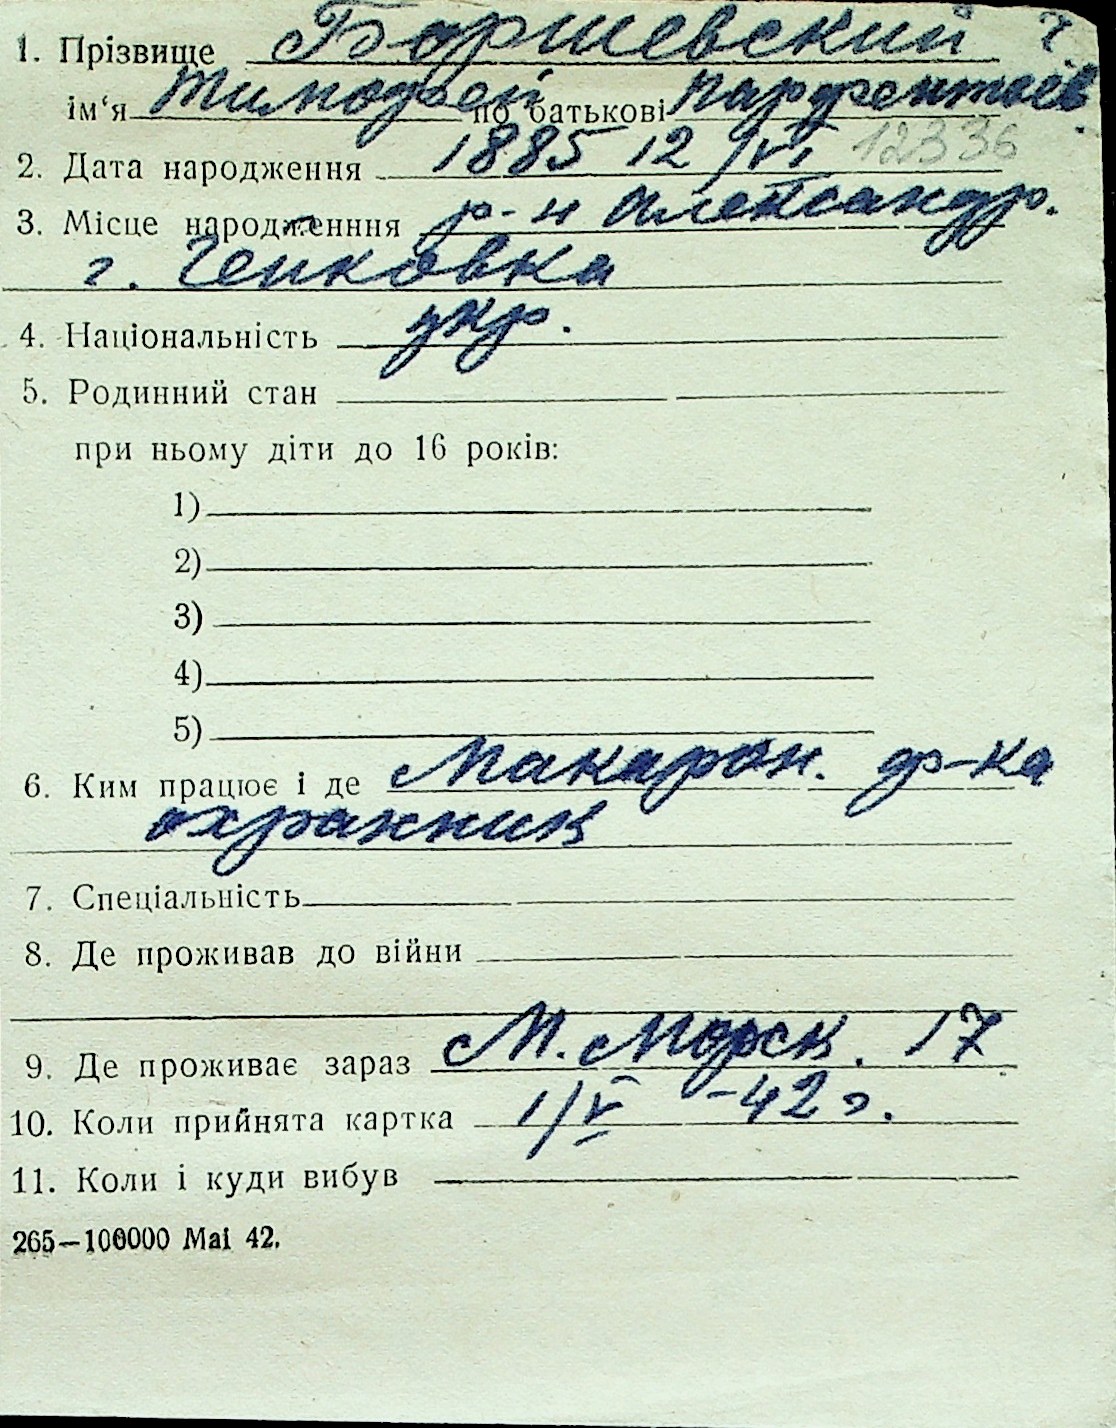 1. Прізвище Боршевский
ім‘я Тимофей по батькові Парфентиев
2. Дата народження 1885 12/VI 12336
3. Місце народженння р-н Александр.
г. Генковка
4. Національність укр.
5. Родинний стан
при ньому діти до 16 років:
1)
2)
3)
4)
5)
6. Ким працює і де Макарон. ф-ка
охранник
7. Спеціальність
8. Де проживав до війни
9. Де проживає зараз М. Морск. 17
10. Коли прийнята картка 1/V -42 г.
11. Коли і куди вибув
265—100000 Mai 42.